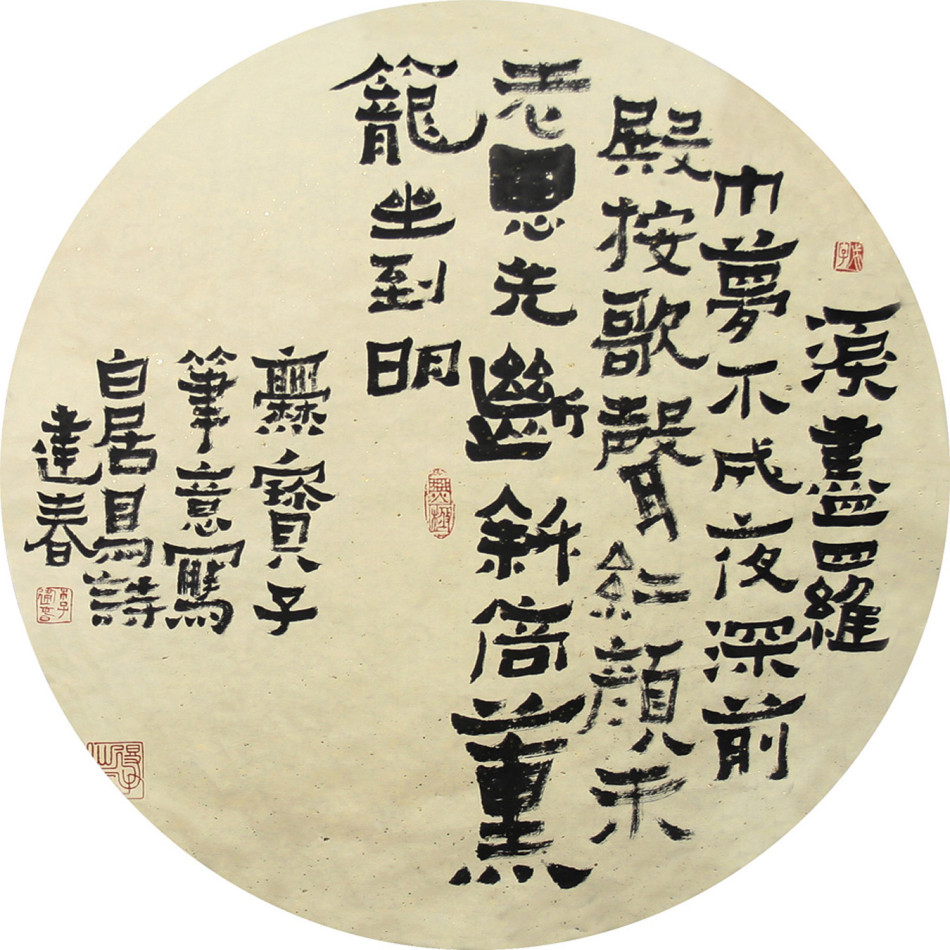 淚盡羅
巾夢不成夜深前
殿按歌聲紅顏未
老恩先斷斜倚薰
籠坐到明
爨寶子
筆意寫
白居易詩
春